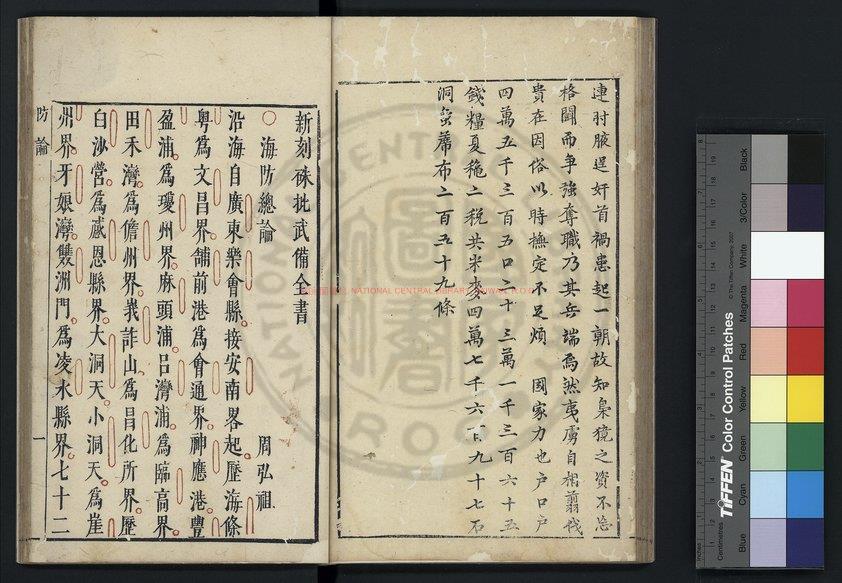 連肘腋逞奸首禍患起一朝故知梟獍之資不忘
格鬪而爭強奪職乃其兵端焉然夷虜自相翦伐
貴在因俗以時撫定不足煩 國家力也戶口戶
四萬五千三百五口二十三萬一千三百六十五
錢糧夏秋二稅共米麥四萬七千六百九十七石
洞蠻蓆布二百五十九條
新刻硃批武備全書
〇海防總論 周弘祖
沿海自廣東樂會縣接安南畧起歷海條
粤爲文昌界鋪前港爲會通界神應港豐
盈浦爲瓊州界麻頭浦呂灣浦爲臨高界
田禾灣爲儋州界峩詐山爲昌化所界歷
白沙營爲感恩縣界大洞天小洞天爲崖
州界牙娘灣雙洲門爲凌水縣界七十二
防論 一
NATIONAL CENTRAL LIBRARY
TIFFEN Color Control Patches
© The Tiffen Company, 2007
Centimetres
Inches
Blue
Cyan
Green
Yellow
Red
Magenta
White
3/Color
Black